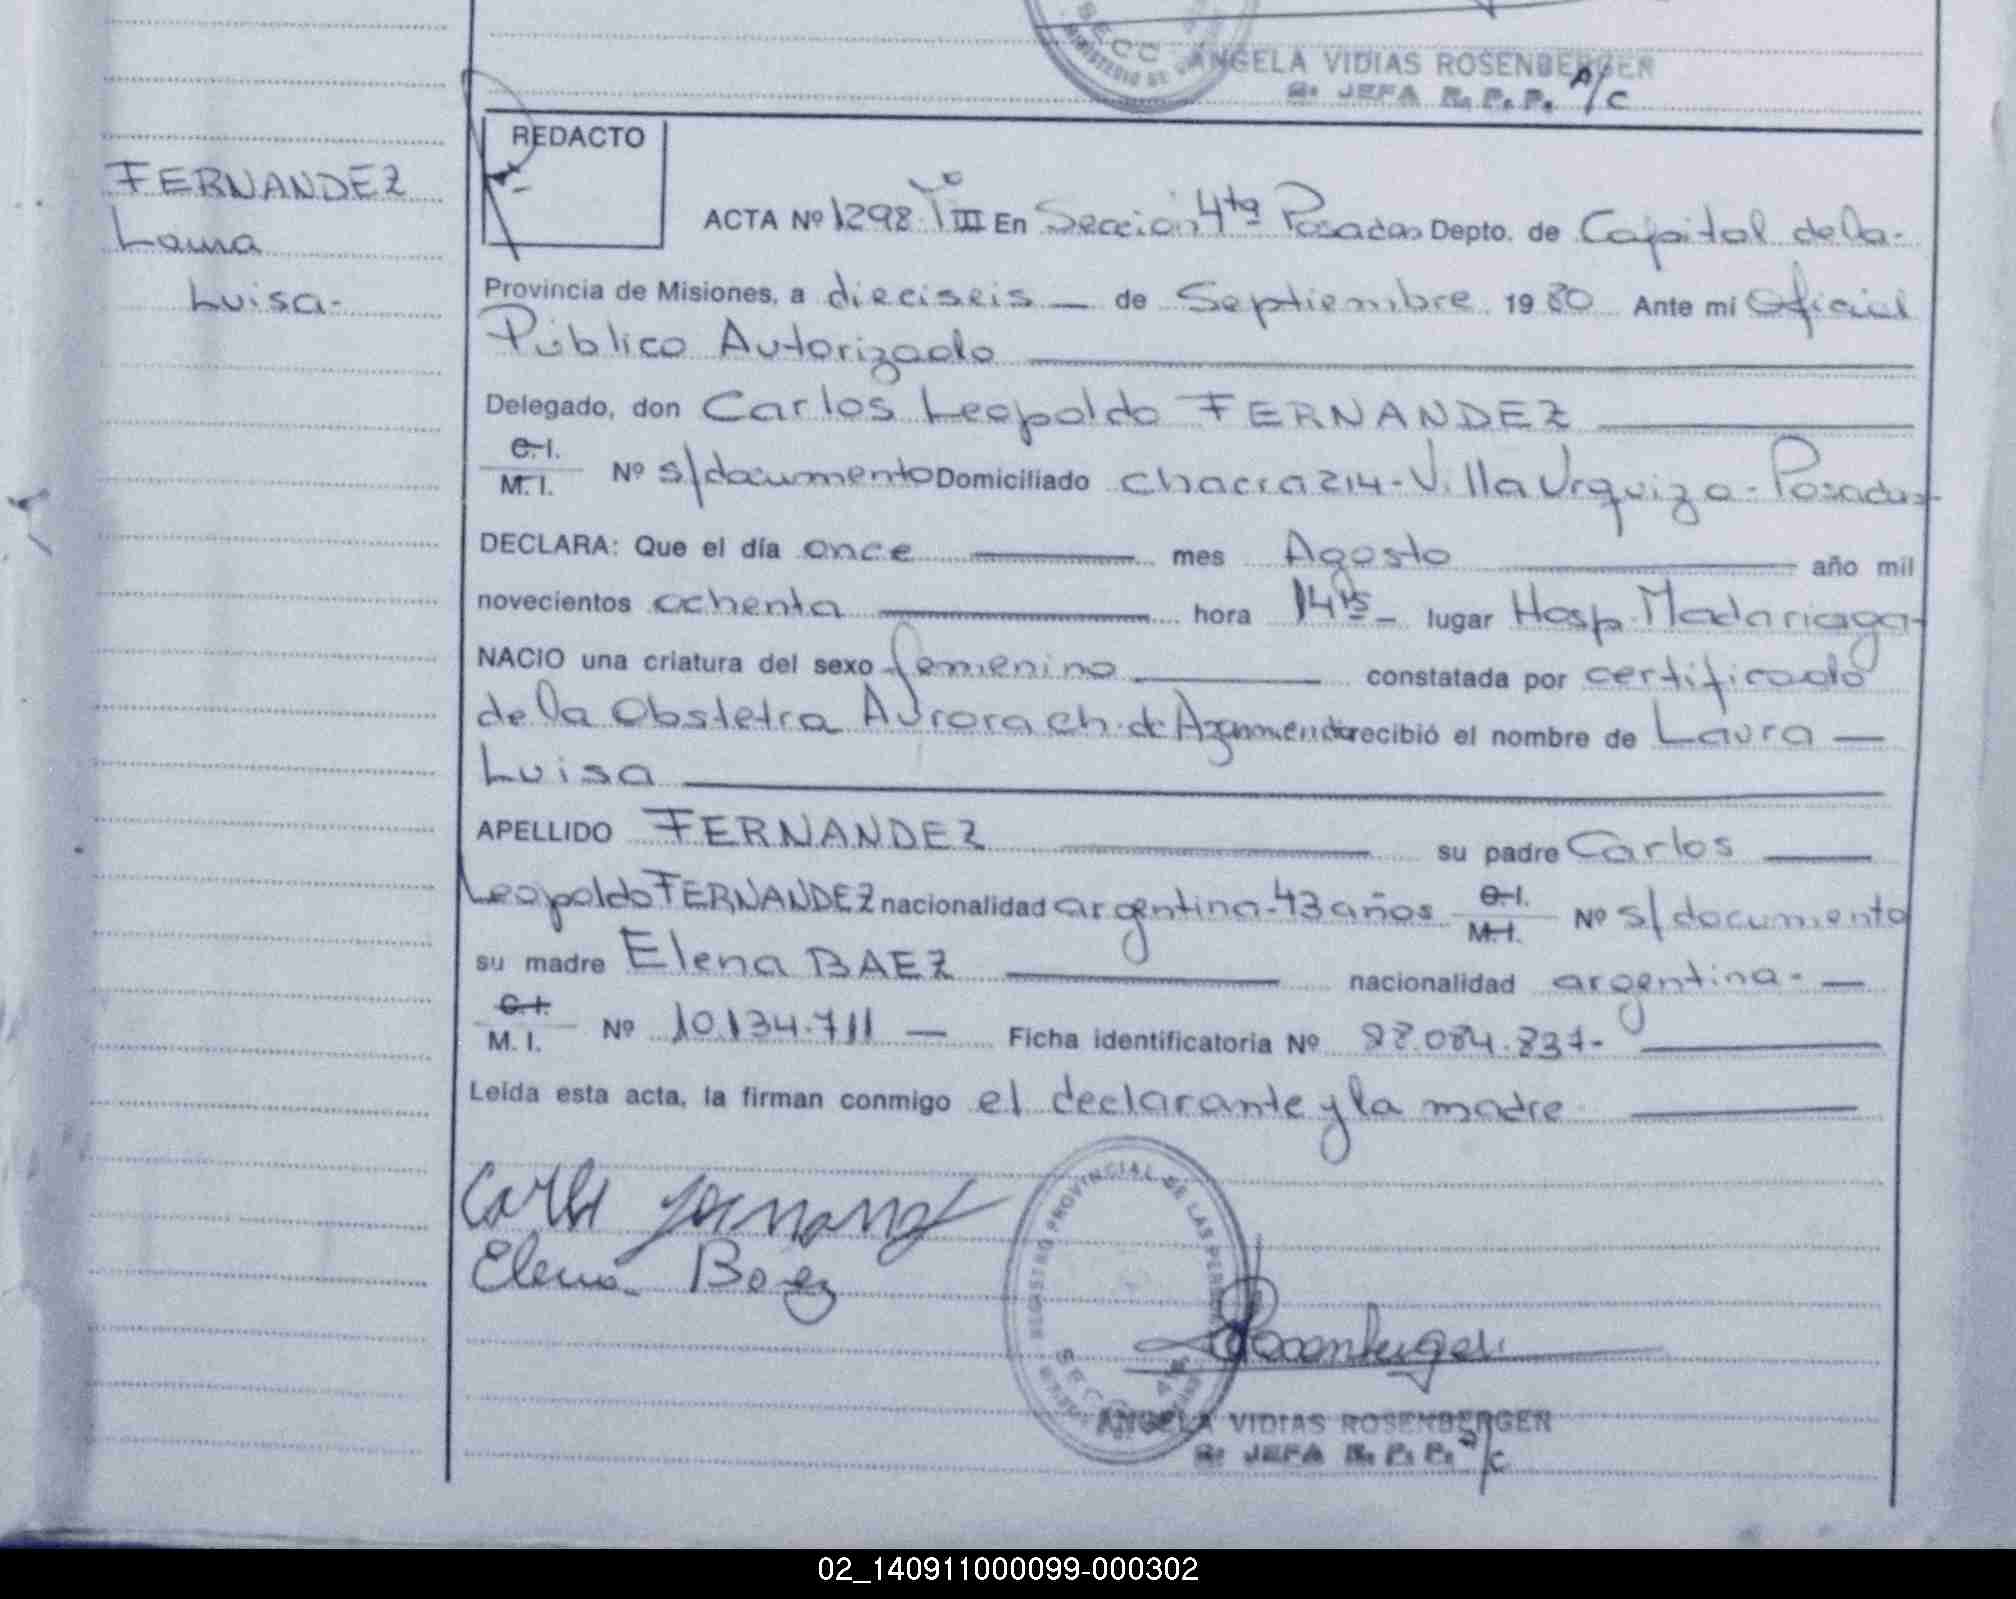 SECC
MINISTERIO DE
ANGELA VIDIAS ROSENBERGER
JEFA R. P. P. A/C
REDACTO
FERNANDEZ
Laura
Luisa-
ACTA Nº 1298 Tº III En Sección 4ta Posadas Depto. de Capital de la-
Provincia de Misiones, a dieciseis — de Septiembre 1980 Ante mí Oficial
Público Autorizado
Delegado, don Carlos Leopoldo FERNANDEZ
C.I.
M.I. Nº s/documento Domiciliado chacra 214-Villa Urquiza-Posadas-
DECLARA: Que el día once mes Agosto año mil
novecientos ochenta hora 14hs- lugar Hosp. Madariaga-
NACIO una criatura del sexo femenino constatada por certificado
de la Obstetra Aurora ch. de Azamendia recibió el nombre de Laura —
Luisa
APELLIDO FERNANDEZ su padre Carlos
Leopoldo FERNANDEZ nacionalidad argentina-43 años C.I. M.I. Nº s/documento
su madre Elena BAEZ nacionalidad argentina- —
C.I.
M.I. Nº 10.134.711 — Ficha identificatoria Nº 28.084.837-
Leída esta acta, la firman conmigo el declarante y la madre
Carlos Fernandez
Elena Baez
REGISTRO PROVINCIAL DE LAS PERSONAS
SECC
Rosenberger
ANGELA VIDIAS ROSENBERGER
JEFA R. P. P. A/C
02_140911000099-000302